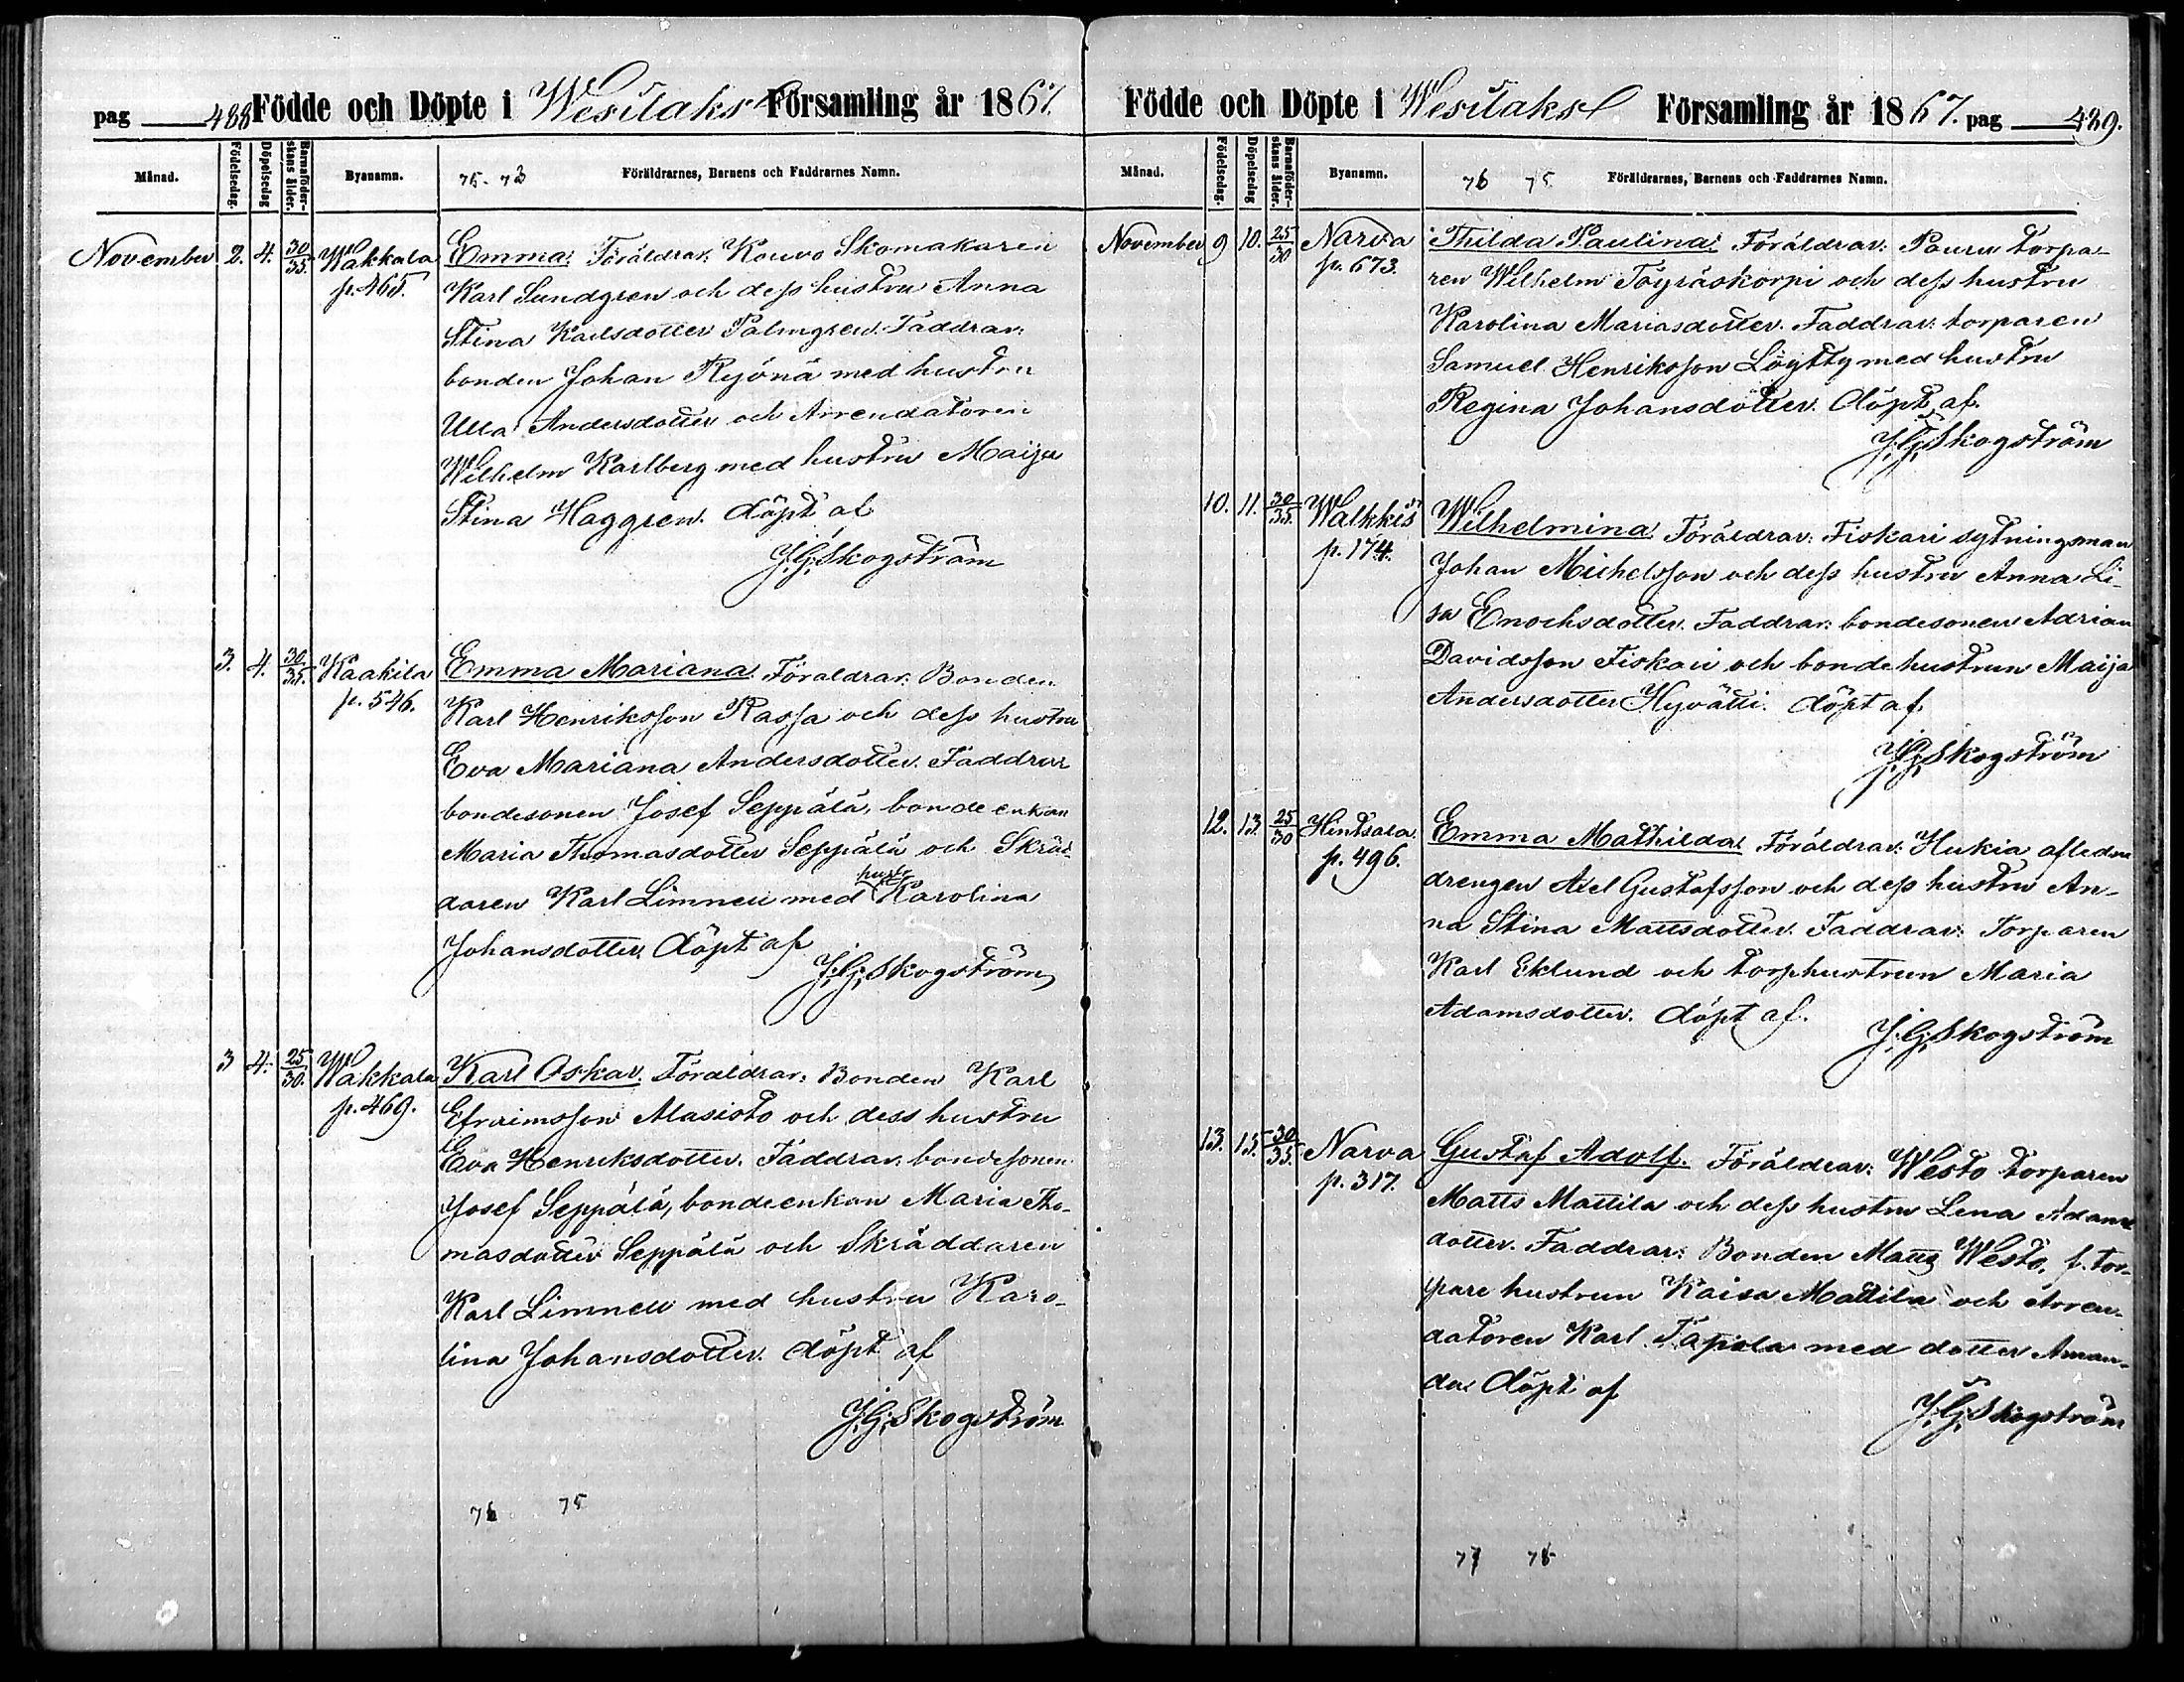 pag 488 Födde och Döpte i Wesilaks Församling år 1867.
Månad. Födelsedag. Döpelsedag Barnaföderskans ålder. Byanamn. 75-73 Föräldrarnes, Barnens och Faddrarnes Namn.
November 2. 4. 30/35. Wakkala p. 465. Emma. Föräldrar: Kouvo Skomakaren
Karl Sundgren och dess hustru Anna
Stina Karlsdotter Palmgren. Faddrar:
bonden Johan Ryönä med hustru
Ulla Andersdotter och Arrendatoren
Wilhelm Karlberg med hustru Maija
Stina Haggren. döpt af
J.G. Skogström
3. 4. 30/35. Kaakila p. 546. Emma Mariana. Föräldrar: Bonden
Karl Henriksson Rassa och dess hustru
Eva Mariana Andersdotter. Faddrar
bondesonen Josef Seppälä, bonde enkan
Maria Thomasdotter Seppälä och Skräd-
daren Karl Limnell med hustr Karolina
Johansdotter. döpt af
J.G. Skogström
3 4. 25/30. Wakkala p. 469. Karl Oskar. Föräldrar: Bonden Karl
Efraimsson Alasisto och dess hustru
Eva Henriksdotter. Faddrar: bondesonen
Josef Seppälä, bondeenkan Maria Tho-
masdotter Seppälä och Skräddaren
Karl Limnell med hustru Karo-
lina Johansdotter. döpt af
J.G. Skogström
76 75
Födde och Döpte i Wesilaks Församling år 1867. pag 489.
Månad. Födelsedag. Döpelsedag Barnaföderskans ålder. Byanamn. 76 75 Föräldrarnes, Barnens och Faddrarnes Namn.
November 9 10. 25/30 Narva p. 673. Thilda Paulina. Föräldrar: Pauru torpa-
ren Wilhelm Töyräskorpi och dess hustru
Karolina Mariasdotter. Faddrar: torparen
Samuel Henriksson Löytty med hustru
Regina Johansdotter. döpt af.
J.G. Skogström
10. 11. 30/35. Walkkis p. 174. Wilhelmina. Föräldrar: Fiskari sytningsman
Johan Michelsson och dess hustru Anna Li-
sa Enochsdotter. Faddrar: bondesonen Adrian
Davidsson Fiskari och bondehustrun Maija
Andersdotter Hyvätti. döpt af
J.G. Skogström
12. 13. 25/30 Hintsala p. 496. Emma Mathilda. Föräldrar: Hukia afledne
drengen Axel Gustafsson och dess hustru An-
na Stina Mattsdotter. Faddrar: Torparen
Karl Eklund och torphustrun Maria
Adamsdotter. döpt af.
J.G. Skogström
13. 15. 30/35. Narva p. 317. Gustaf Adolf. Föräldrar: Westo torparen
Matts Mattila och dess hustru Lena Adams
dotter. Faddrar: Bonden Matts Westo, f. tor-
pare hustrun Kaisa Mattila och Arren-
datoren Karl Tapola med dotter Aman-
da. döpt af
J.G. Skogström
77 76